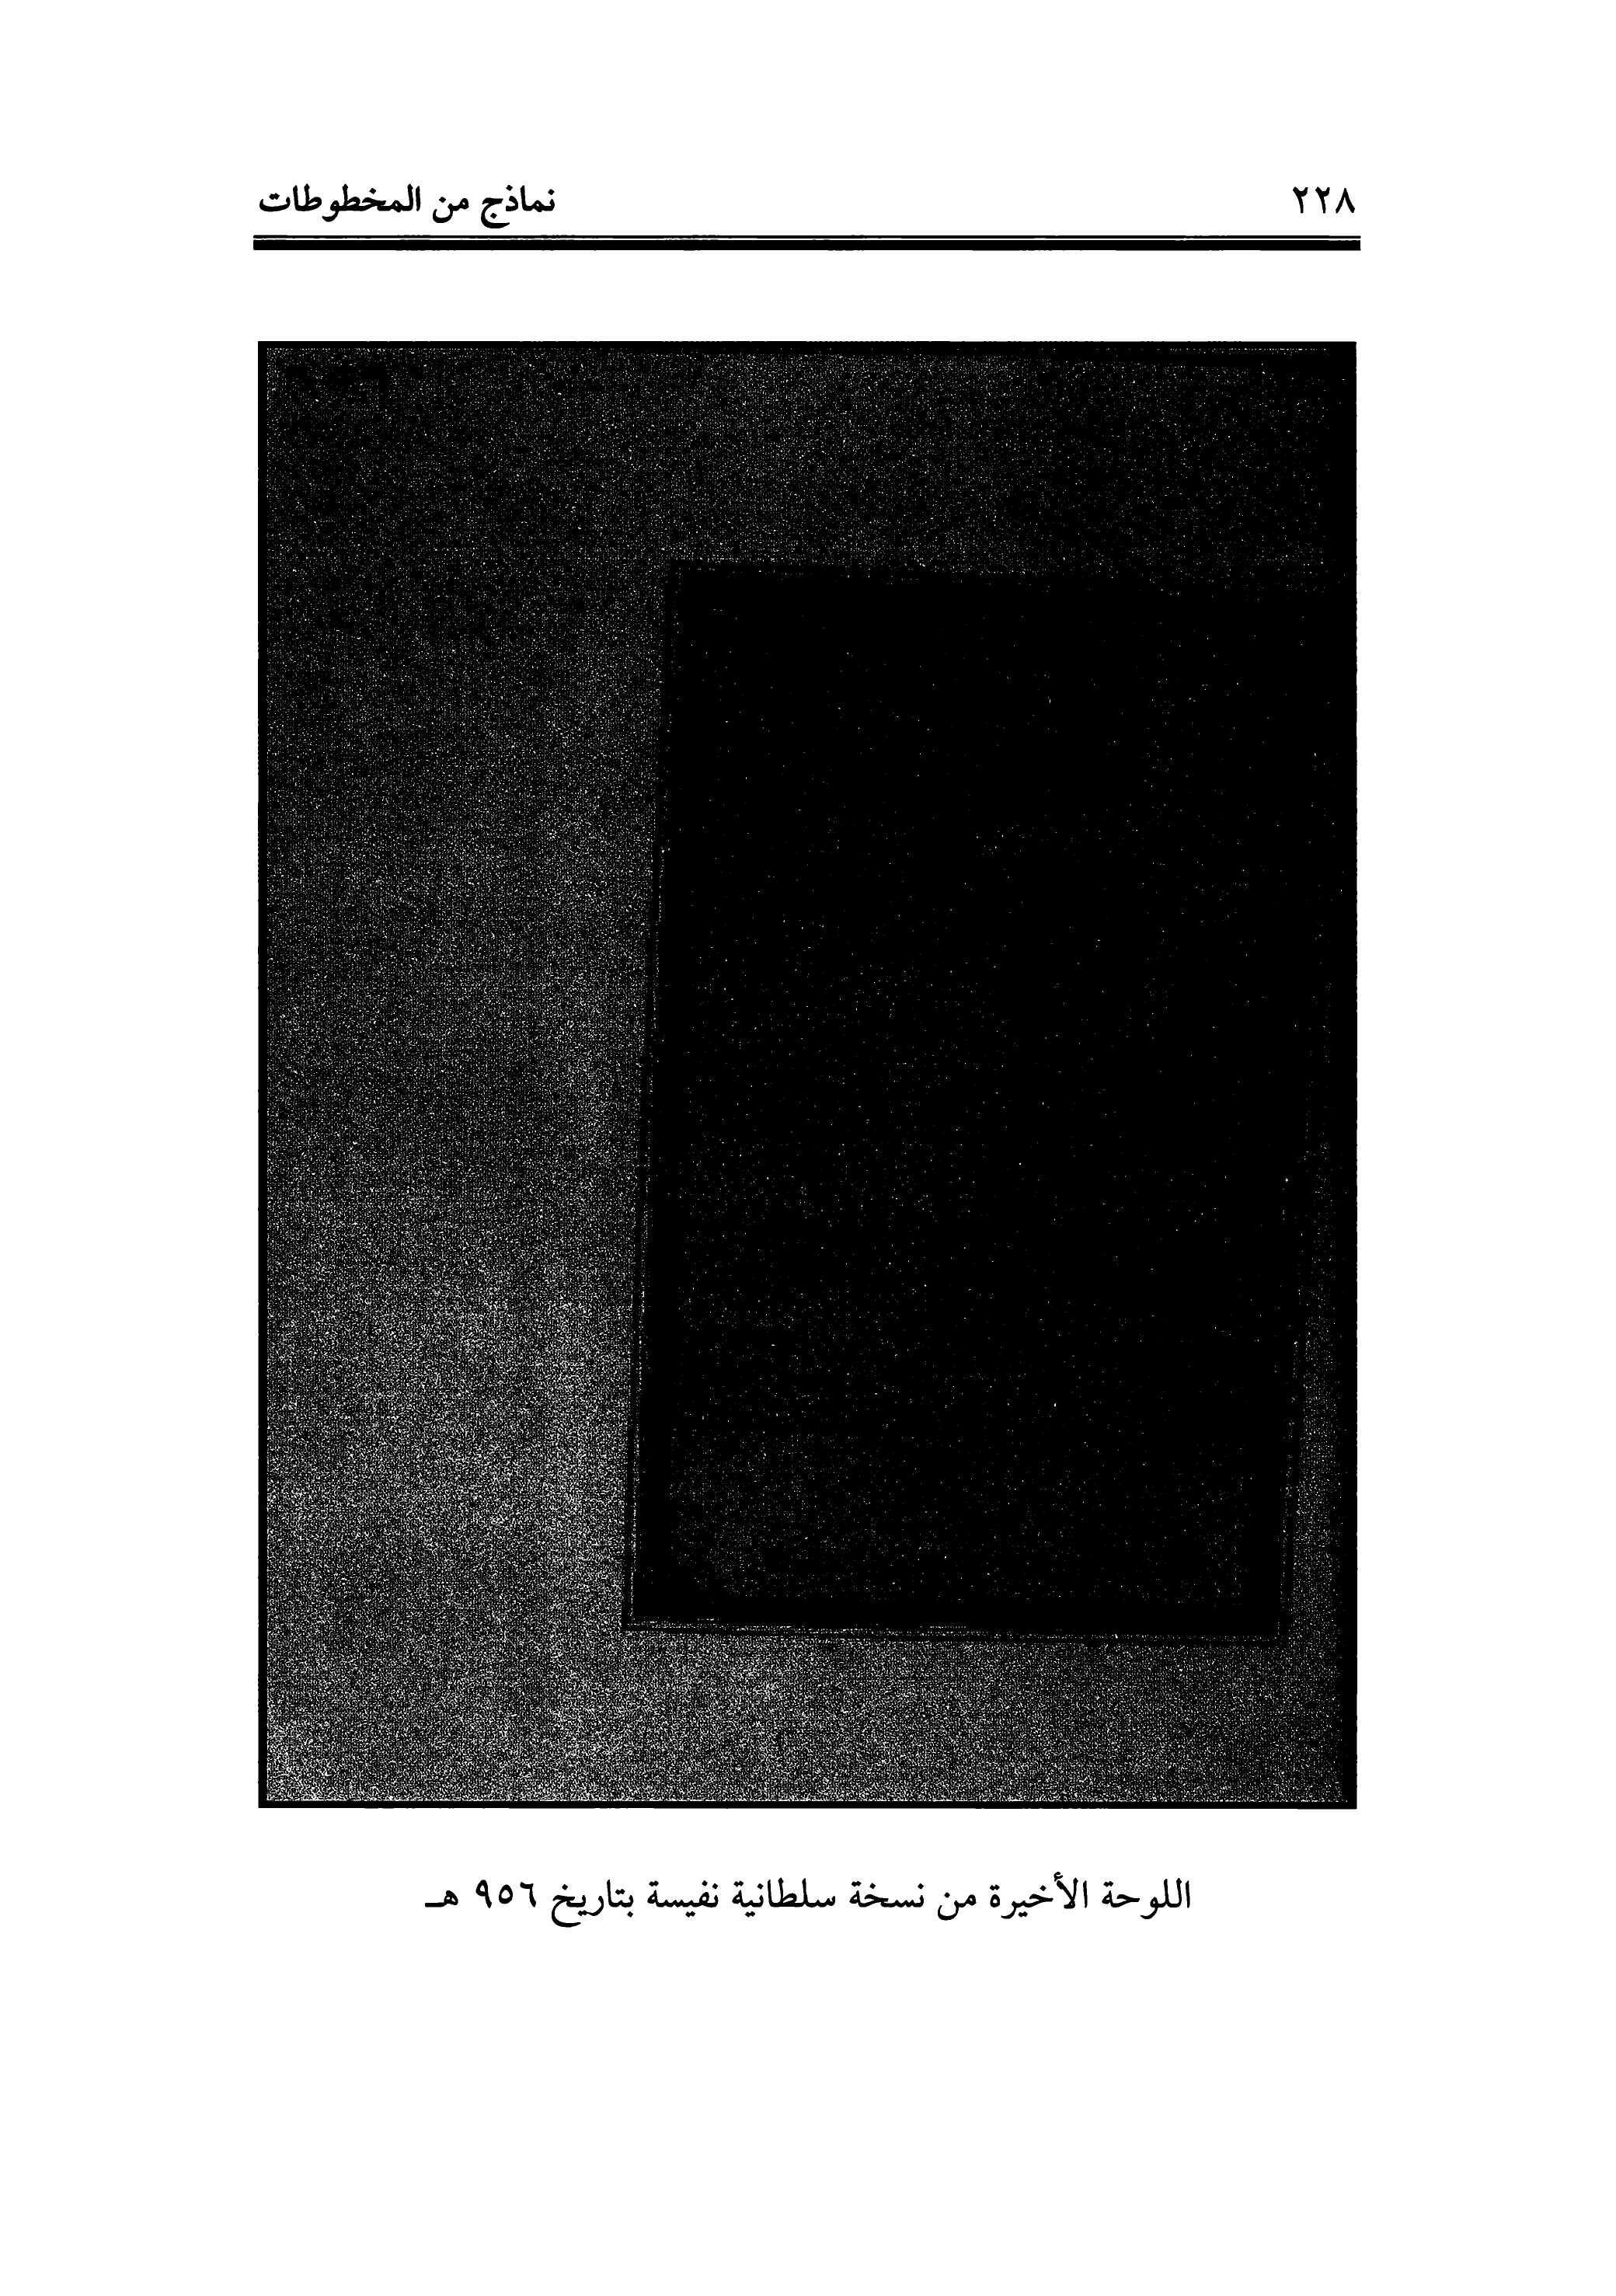 ٢٢٨
نماذج من المخطوطات
اللوحة الأخيرة من نسخة سلطانية نفيسة بتاريخ ٩٥٦ هـ